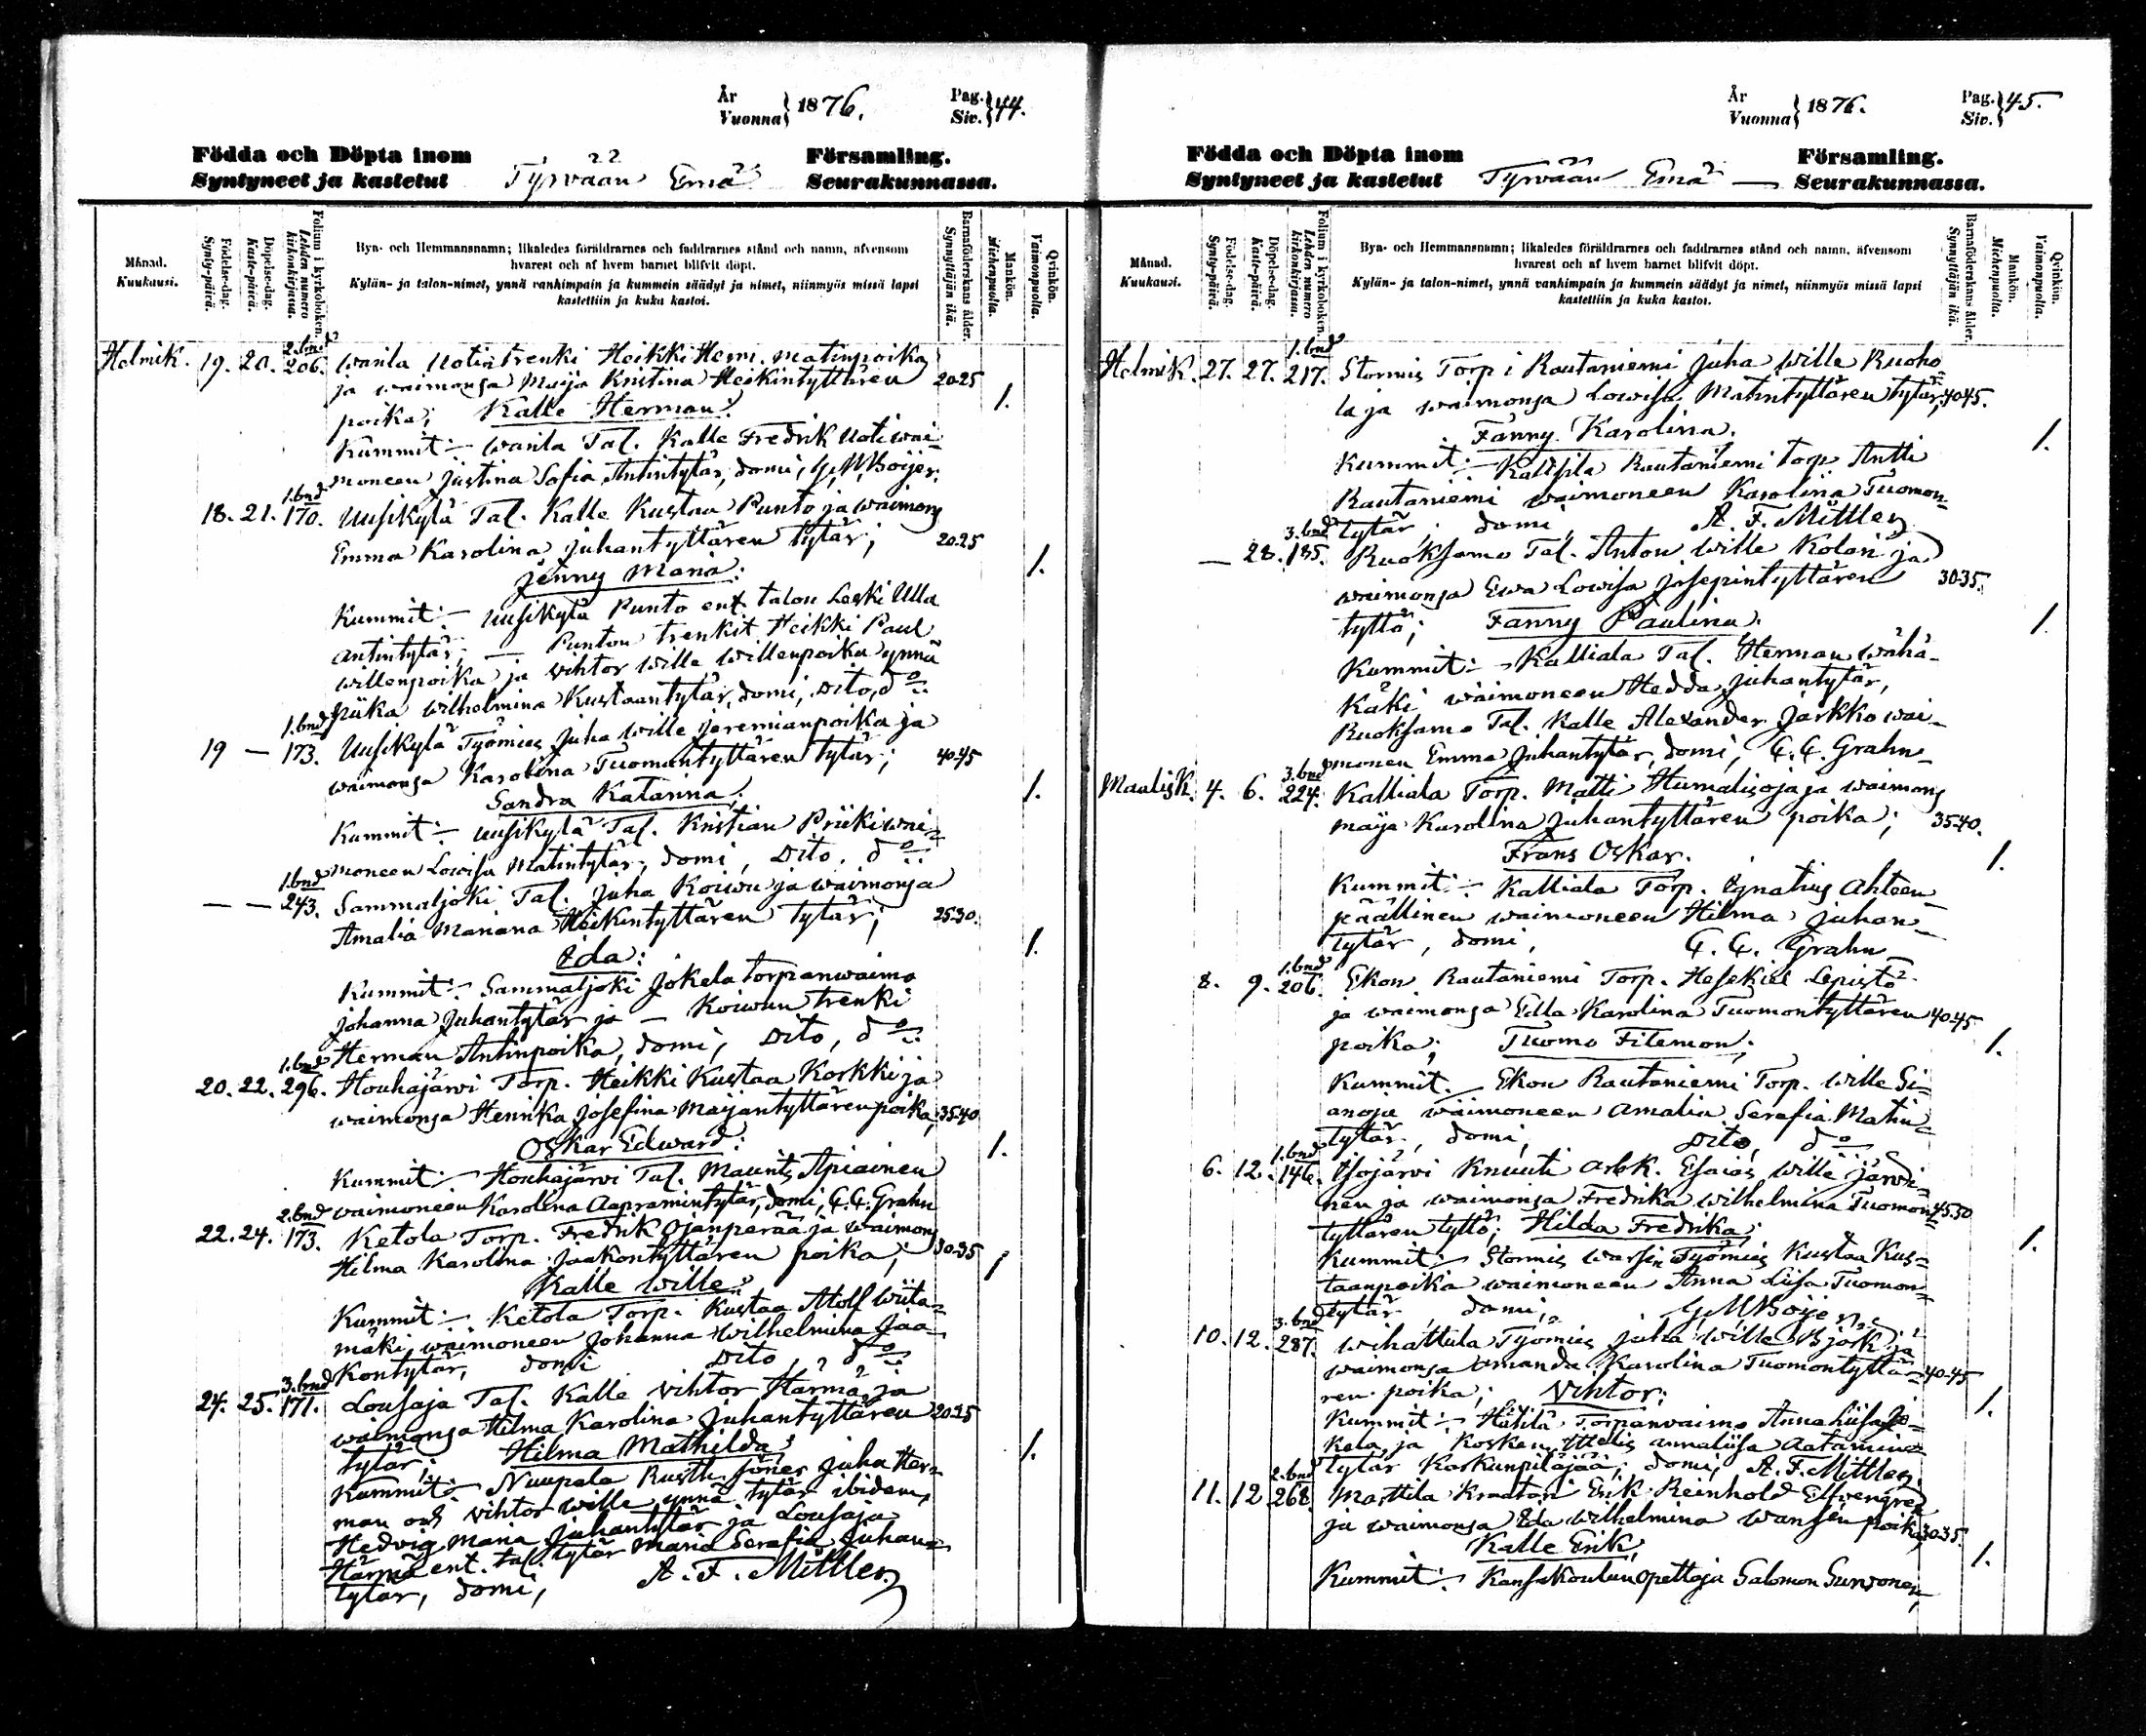 År
Vuonna } 1876.
Pag.
Siv. } 44.
Födda och Döpta inom
Syntyneet ja kastetut
Tyrvään Emä
Församling.
Seurakunnassa.
Månad.
Kuukausi.
Födelse-dag.
Synty-päivä.
Döpelse-dag.
Kaste-päivä.
Folium i kyrkoboken.
Lehden numero kirkonkirjassa.
Bya- och Hemmansnamn; likaledes föräldrarnes och faddrarnes stånd och namn, äfvensom
hvarest och af hvem barnet blifvit döpt.
Kylän- ja talon-nimet, ynnä vanhimpain ja kummein säädyt ja nimet, niinmyös missä lapsi
kastettiin ja kuka kastoi.
Barnaföderskans ålder.
Synnyttäjän ikä.
Mankön.
Miehenpuolta.
Qvinkön.
Vaimonpuolta.
Helmik. 19. 20. 2.bnd 206. Warila Uotin trenki Heikki Herm. Matinpoika
ja waimonsa Maija Kristina Heikintyttären 20-25
poika; Kalle Herman: 1.
Kummit:- Warila Tal. Kalle Fredrik Uoti wai-
moneen Justina Sofia Antintytär, domi, G. M. Boijer.
18. 21. 1.bnd 170. Uusikylä Tal. Kalle Kustaa Punto ja waimons
Emma Karolina Juhantyttären tytär; 20-25
Jenny Maria: 1.
Kummit:- Uusikylä Punto ent. talon Leski Ulla
Antintytär; - Punton trenkit Heikki Paul
Willenpoika ja Vihtor Wille Willenpoika ynnä
piika Wilhelmina Kustaantytär, domi, Dito, do
19 - 1.bnd 173. Uusikylä Työmies Juha Wille Jeremianpoika ja
waimonsa Karolina Tuomantyttären tytär; 40-45
Sandra Katarina; 1.
Kummit:- Uusikylä Tal. Kristian Priiki wai-
moneen Lowisa Matintytär; domi, Dito, do
- - 1.bnd 243. Sammaljoki Tal. Juha Koiwu ja waimonsa
Amalia Mariana Heikintyttären tytär; 25-30.
Ida: 1.
Kummit:- Sammaljoki Jokela torpanwaimo
Johanna Juhantytär ja - Koiwun trenki
Herman Antinpoika, domi, Dito, do
20. 22. 1.bnd 296. Houhajärwi Torp. Heikki Kustaa Korkki ja
waimonsa Henrika Josefina Maijantyttären poika; 35-40
Oskar Edward: 1.
Kummit:- Houhajärwi Tal. Maunits Apiainen
waimoneen Karolina Aapramintytär, domi, G. G. Grahn
22. 24. 2.bnd 173. Ketola Torp. Fredrik Ojanperää ja waimons
Hilma Karolina Jaakontyttären poika; 30-35
Kalle Wille: 1
Kummit:- Ketola Torp. Kustaa Adolf Wiita-
mäki, waimoneen Johanna Wilhelmina Jaa-
kontytär, domi Dito, do
24. 25. 3.bnd 171. Lousaja Tal. Kalle Vihtor Härmä, ja
waimonsa Hilma Karolina Juhantyttären 20-25
tytär; Hilma Mathilda; 1.
Kummit:- Nuupala Rusth. Söner Juha Her-
man och Vihtor Wille ynnä tytär ibidem,
Hedvig Maria Juhantytär ja Lousaja
Härmä ent. tal. tytär Maria Serafia Juhan-
tytär, domi, A. F. Mittler
År
Vuonna } 1876.
Pag.
Siv. } 45.
Födda och Döpta inom
Syntyneet ja kastetut
Tyrvään Emä
Församling.
Seurakunnassa.
Månad.
Kuukausi.
Födelse-dag.
Synty-päivä.
Döpelse-dag.
Kaste-päivä.
Folium i kyrkoboken.
Lehden numero kirkonkirjassa.
Bya- och Hemmansnamn; likaledes föräldrarnes och faddrarnes stånd och namn, äfvensom
hvarest och af hvem barnet blifvit döpt.
Kylän- ja talon-nimet, ynnä vanhimpain ja kummein säädyt ja nimet, niinmyös missä lapsi
kastettiin ja kuka kastoi.
Barnaföderskans ålder.
Synnyttäjän ikä.
Mankön.
Miehenpuolta.
Qvinkön.
Vaimonpuolta.
Helmik. 27. 27. 1.bnd 217. Stormis Torp i Rautaniemi Juha Wille Ruoho-
la ja waimonsa Lowisa Matintyttären tytär; 40-45.
Fanny Karolina. 1.
Kummit:- Kallsila Rautaniemi torp. Antti
Rautaniemi waimoneen Karolina Tuomon-
tytär, domi, A. F. Mittler
- 28. 3.bnd 185. Ruoksamo Tal. Anton Wille Kolari ja
waimonsa Ewa Lowisa Josepintyttären 30-35.
tyttö; Fanny Paulina. 1.
Kummit:- Kalliala Tal. Herman Wähä-
Käki waimoneen Hedda Juhantytär,
Ruoksamo Tal. Kalle Alexander Jaskko wai-
monen Emma Juhantytär, domi, G. G. Grahn
Maalisk. 4. 6. 3.bnd 224. Kalliala Torp. Matti Humalisoja ja waimons
Maija Karolina Juhantyttären poika; 35-40.
Frans Oskar. 1.
Kummit:- Kalliala Torp. Ignatius Ahteen-
päällinen waimoneen Hilma Juhan-
tytär, domi, G. G. Grahn
8. 9. 1.bnd 206. Ekon Rautaniemi Torp. Hesekiel Lepistö
ja waimonsa Ulla Karolina Tuomontyttären 40-45
poika; Tuomo Filemon; 1.
Kummit.- Ekon Rautaniemi Torp. Wille Si-
anoja waimoneen Amalia Serafia Matin-
tytär, domi, Dito, do
6. 12. 1.bnd 146. Isojärvi Knuuti arbk. Esaias Wille Järvi-
nen ja waimonsa Fredrika Wilhelmina Tuomon- 45-50
tyttären tyttö; Hilda Fredrika; 1.
Kummit:- Stormis Warsin Työmies Kustaa Kus-
taanpoika waimoneen Anna Liisa Tuomon-
tytär, domi, G M Boijer
10. 12. 3.bnd 287. Wihattula Työmies Juha Wille Björk ja
waimonsa Amanda Karolina Tuomontyttä- 40-45
ren poika; Vihtor; 1.
Kummit:- Häsilä Torpanwaimo Anna Liisa Jo-
kela, ja Kosken Itellis Annaliisa Aatamin-
tytär Karkunpiläjää; domi, A. F. Mittler.
11. 12 2.bnd 268. Marttila Kraatari Erik Reinhold Elfvengren
ja waimonsa Ida Wilhelmina Wansen poika; 30-35.
Kalle Erik, 1.
Kummit:- Kansakoulun opettaja Salomon Sunronen,